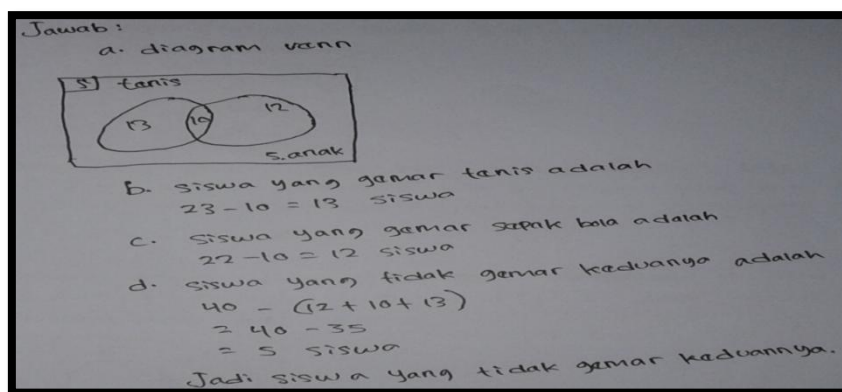 Jawab:
a. diagram venn
S tanis
13 10 12
5. anak
b. siswa yang gamar tanis adalah
23 - 10 = 13 siswa
c. siswa yang gemar sepak bola adalah
22 - 10 = 12 siswa
d. siswa yang tidak gemar keduanya adalah
40 - (12 + 10 + 13)
= 40 - 35
= 5 siswa
Jadi siswa yang tidak gemar keduannya.